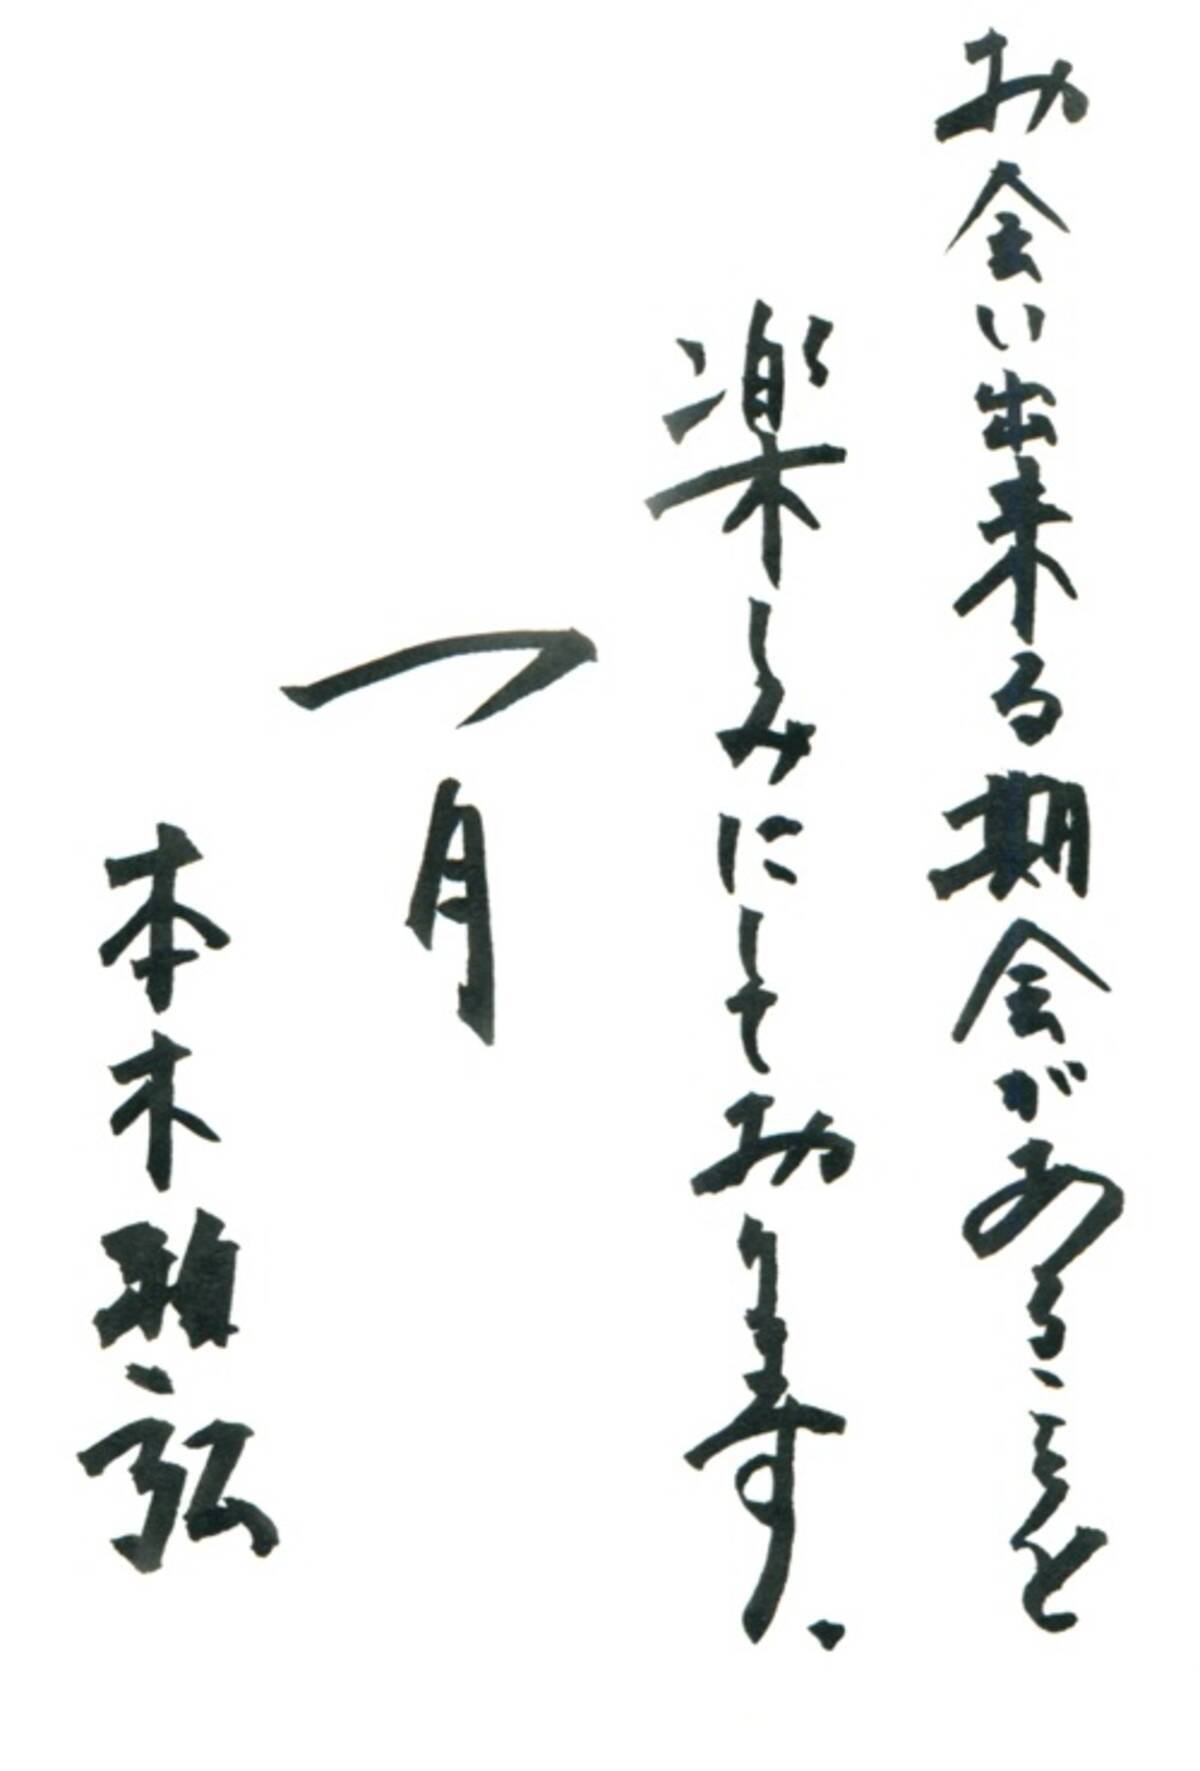 お会い出来る期会があることを
楽しみにしております.
一月
本木雅弘